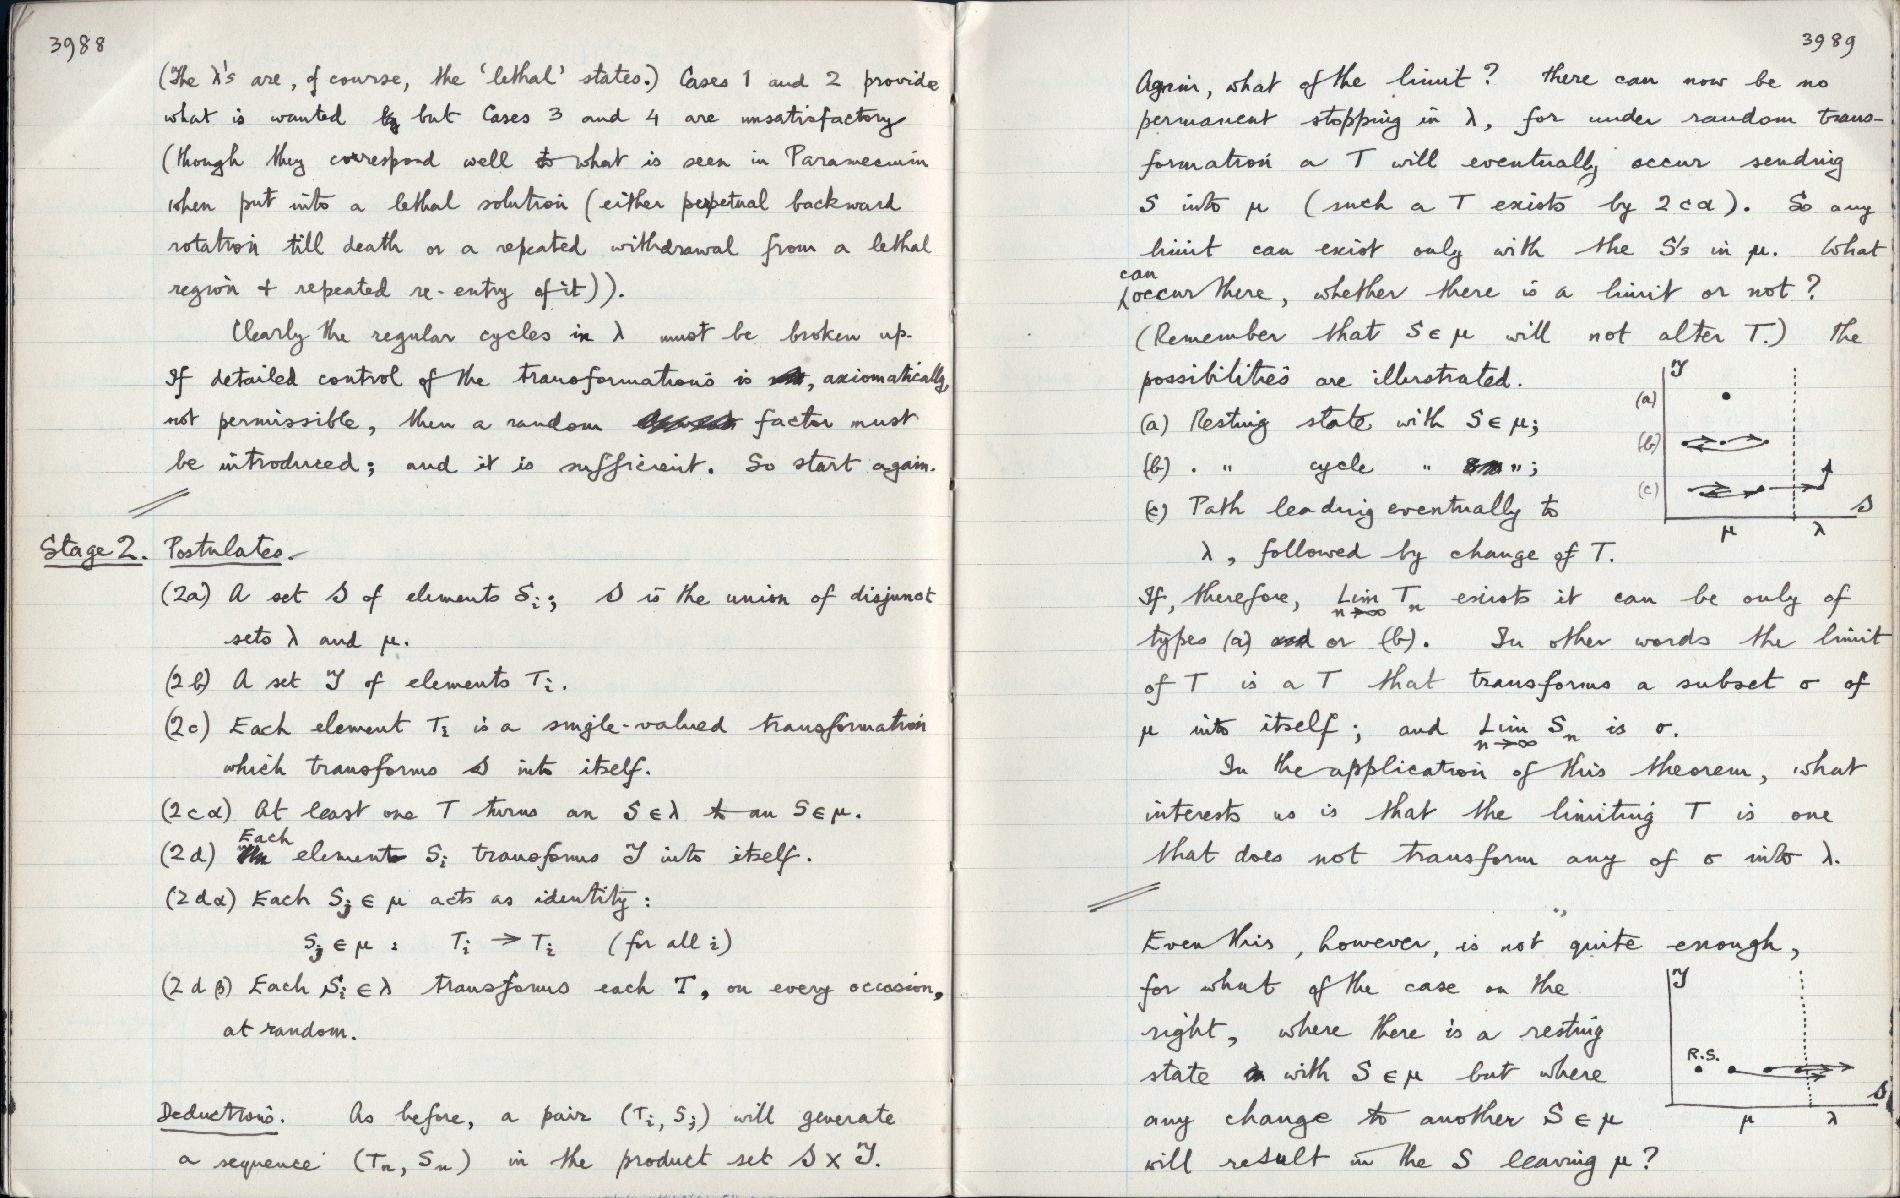 3988
(The λ's are, of course, the 'lethal' states.) Cases 1 and 2 provide
what is wanted but Cases 3 and 4 are unsatisfactory
(though they correspond well to what is seen in Paramecium
when put into a lethal solution (either perpetual backward
rotation till death or a repeated withdrawal from a lethal
region + repeated re-entry of it)).
Clearly the regular cycles in λ must be broken up.
If detailed control of the transformations is, axiomatically,
not permissible, then a random factor must
be introduced; and it is sufficient. So start again.
Stage 2. Postulates.
(2a) A set S of elements Si; S is the union of disjunct
sets λ and μ.
(2b) A set T of elements Ti.
(2c) Each element Ti is a single-valued transformation
which transforms S into itself.
(2cα) At least one T turns an S ∈ λ to an S ∈ μ.
(2d) Each element Si transforms T into itself.
(2dα) Each Sj ∈ μ acts as identity:
Sj ∈ μ : Ti → Ti (for all i)
(2dβ) Each Si ∈ λ transforms each T, on every occasion,
at random.
Deductions. As before, a pair (Ti, Sj) will generate
a sequence (Tn, Sn) in the product set S × T.
3989
Again, what of the limit? There can now be no
permanent stopping in λ, for under random trans-
formation a T will eventually occur sending
S into μ (such a T exists by 2cα). So any
limit can exist only with the S's in μ. What
can occur there, whether there is a limit or not?
(Remember that S ∈ μ will not alter T.) The
possibilities are illustrated.
(a) Resting state with S ∈ μ;
(b) . " cycle " " ;
(c) Path leading eventually to
λ, followed by change of T.
T
(a)
(b)
(c)
S
μ λ
If, therefore, Lim n→∞ Tn exists it can be only of
types (a) or (b). In other words the limit
of T is a T that transforms a subset σ of
μ into itself; and Lim n→∞ Sn is σ.
In the application of this theorem, what
interests us is that the limiting T is one
that does not transform any of σ into λ.
Even this, however, is not quite enough,
for what of the case on the
right, where there is a resting
state with S ∈ μ but where
any change to another S ∈ μ
will result in the S leaving μ?
T
R.S.
S
μ λ